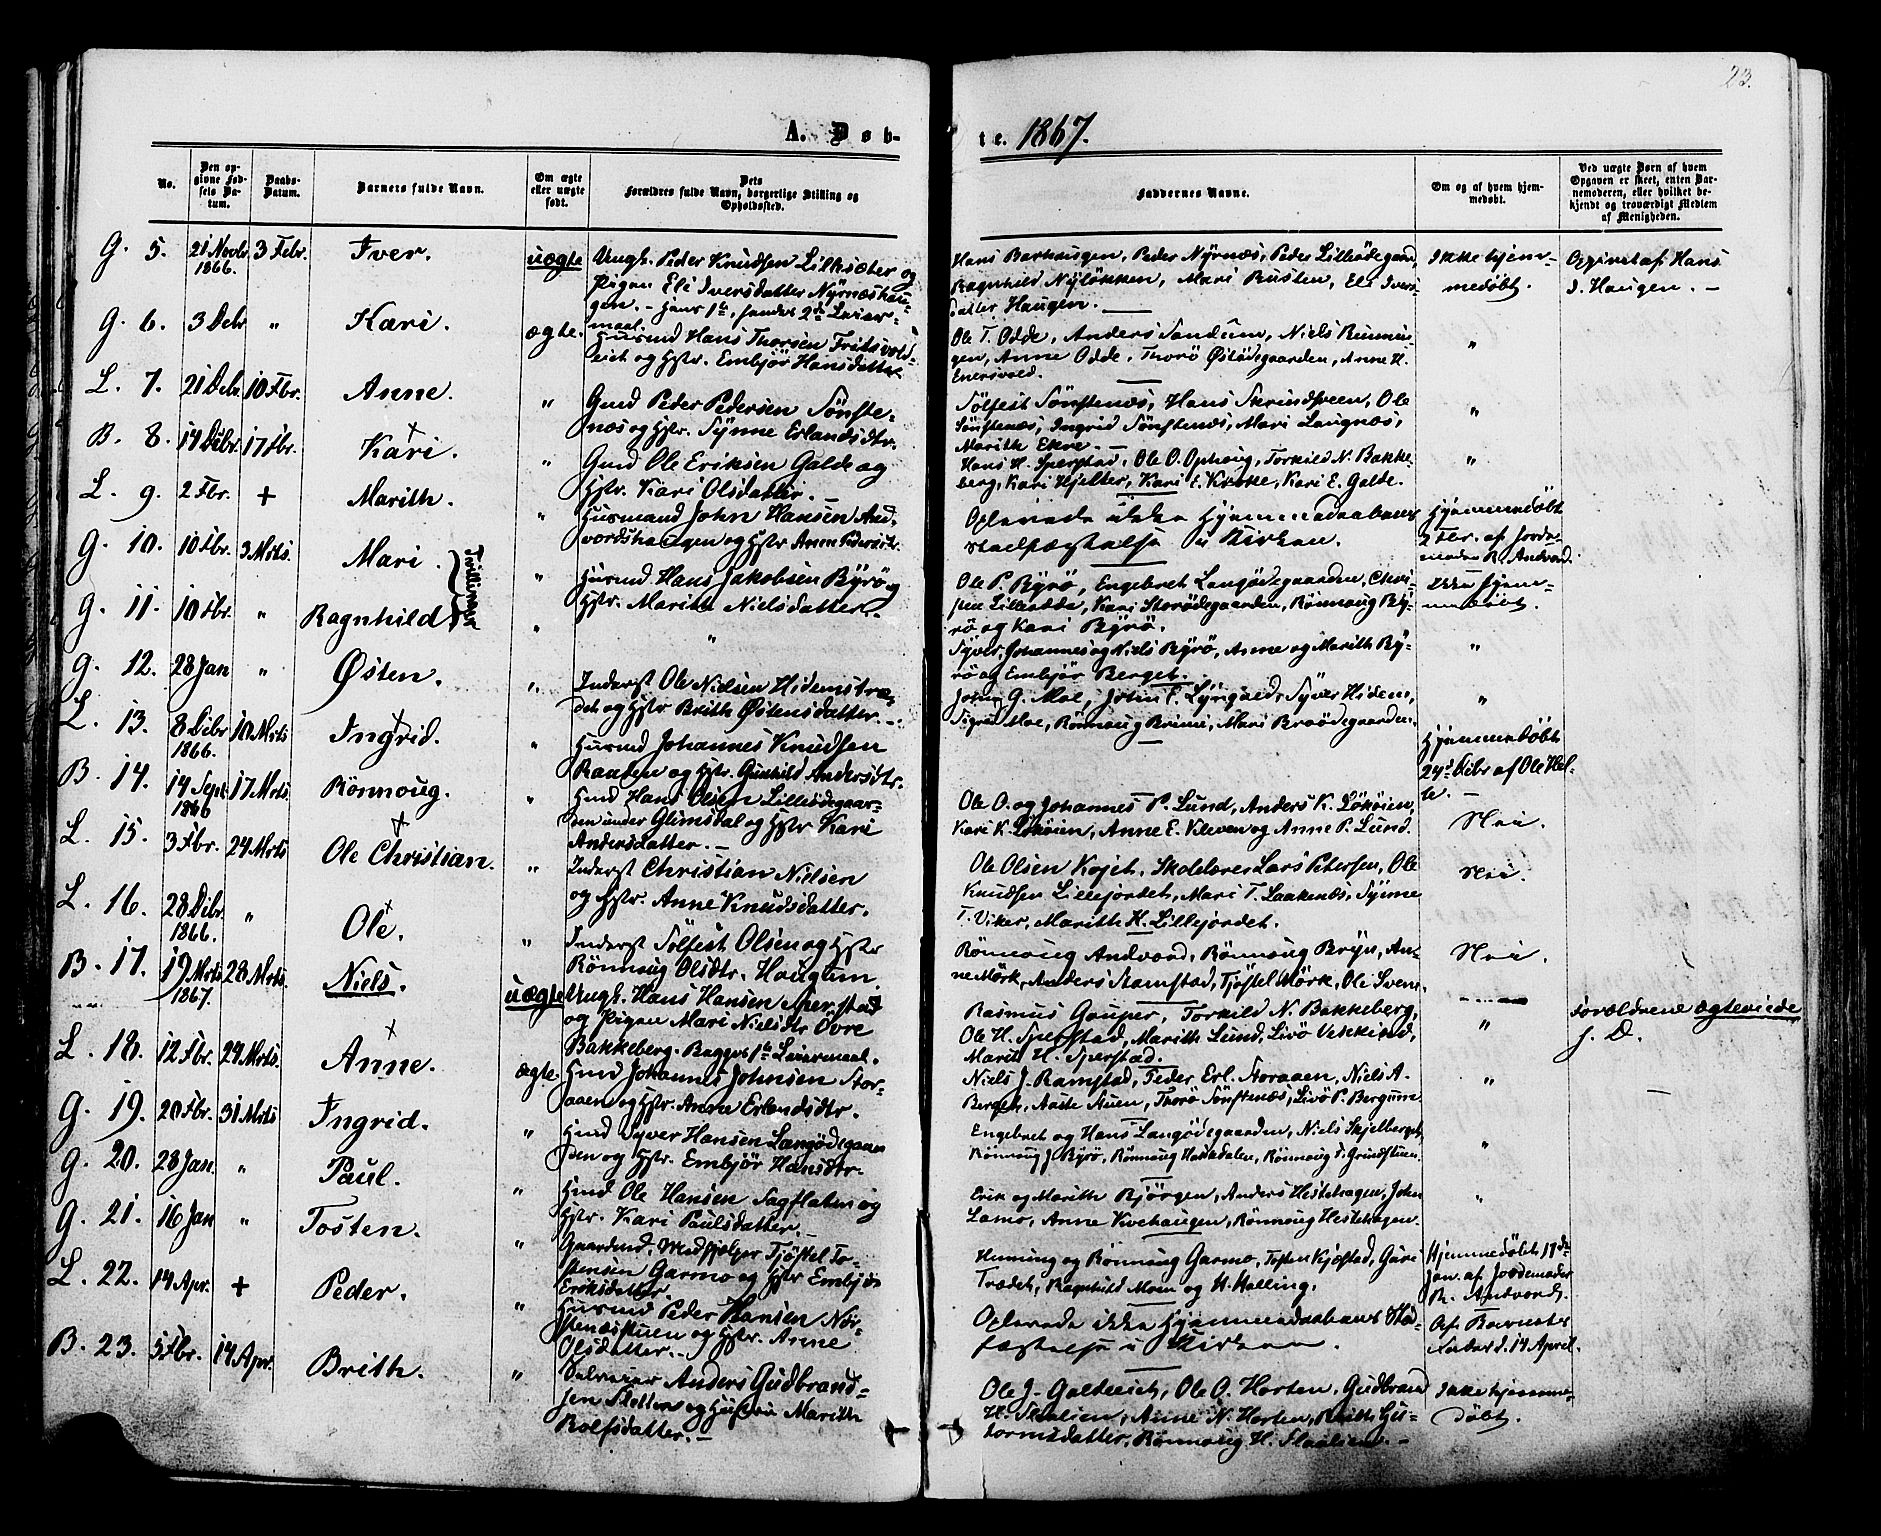 23.
A. Døb-
te. 1867.
No.
Den op-
givne Fød-
sels Da-
tum.
Daabs-
Datum.
Barnets fulde Navn.
Om ægte
eller uægte
født.
Dets
Forældres fulde Navn, borgerlige Stilling og
Opholdssted.
Faddernes Navne.
Om og af hvem hjem-
medøbt.
Ved uægte Børn af hvem
Opgaven er skeet, enten Bar-
nemoderen, eller hvilket be-
kjendt og troværdigt Medlem
af Menigheden.
G. 5. 21 Novbr 1866. 3 Febr. Iver. uægte
Ungk. Peder Knudsen Lilksæter og
Pigen Eli Iversdatter Nyrnæshau-
gen. - Hans 1te, hendes 2det Leier-
maal.
Hans Barhaugen, Peder Nyrnæs, Peder Lilleødegaard,
Ragnhild Nyløkken, Mari Rusten, Eli Ivers-
datter Haugen.
Ikke hjem-
medøbt.
Opgivet af Hans
I. Haugen. -
G. 6. 3 Debr " Kari. ægte.
Husmd Hans Thorsen Fritsvold-
eiet og Hstr. Embjør Hansdatter
Ole T. Odde, Anders Sandum, Niels Runnin-
gen, Anne Odde, Thorø Østødegaarden, Anne H.
Enersvold.
"
L. 7. 21 Debr. 10 Fbr. Anne. "
Gmd Peder Pedersen Sønste-
næs og Hstr. Synne Erlandsdtr.
Sølfest Sønstenæs, Hans Skrindsreen, Ole
Sønstenæs, Ingrid Sønstenæs, Mari Laugnæs,
Marith Ekre. -
"
B. 8. 14 Debr. 17 Fbr. Kari. "
Gmd Ole Eriksen Galde og
Hstr. Kari Olsdatter. -
Hans H. Sperstad, Ole O. Ophoug, Torkild N. Bakke-
berg, Kari Hjelter, Kari E. Kroke, Kari E. Galde.
"
L. 9. 2 Fbr. + Marith. "
Husmand John Hansen And-
vordshaugen og Hstr Anne Pedersdtr.
Oplevede ikke Hjemmedaabens
Stadfæstelse i Kirken.
Hjemmedøbt
2 Febr. af Jorde-
moder R. Andvord.
G. 10. 10 Fbr. 3 Mrts. Mari. "
Tvillinger
Husmd Hans Jakobsen Byrø og
Hstr. Marith Nielsdatter.
Ole P. Byrø, Engebret Langødegaarden, Chri-
sten Lilleødde, Kari Storødegaarden, Rønnoug By-
rø og Kari Byrø.
Ikke hjem-
medøbt.
G. 11. 10 Fbr. " Ragnhild " "
Syver, Johannes og Niels Byrø, Anne og Marith By-
rø og Embjør Berget.
"
G. 12. 28 Jan " Østen. "
Inderst Ole Nielsen Hidemstræ-
det og Hstr Brith Østensdatter. -
John G. Moe, John F. Lyngved, Syver Hidem,
Sigrid Moe, Rønnoug Brimi, Mari Braødegaarden.
"
L. 13. 8 Debr 1866. 10 Mrts Ingrid. "
Husmd Johannes Knudsen
Raaden og Hstr. Gunhild Andersdtr.
Hjemmedøbt
24de Debr af Ole Hel-
le. -
B. 14. 14 Sept 1866 17 Mrts. Rønnoug. "
Hmd Hans Olsen Lilleødegaar-
den under Glimsdal og Hstr Kari
Andersdatter. -
Ole O. og Johannes P. Lund, Anders K. Løkøien,
Kari K. Løkøien, Anne E. Kleven og Anne P. Lund.
Nei.
L. 15. 3 Fbr. 24 Mrts Ole Christian. "
Inderst Christian Nielsen
og Hstr. Anne Knudsdatter.
Ole Olsen Kojet, Skolelærer Lars Petersen, Ole
Knudsen Lillejordet, Mari T. Laakenæs, Synne
T. Viker, Marith H. Lillejordet.
Nei.
L. 16. 28 Debr. 1866. " Ole. "
Inderst Sølfest Olsen og Hstr
Rønnoug Olsdtr. Haugum.
Rønnoug Andvord, Rønnoug Bryn, An-
ne Mørk, Anders Stamstad, Tjøstel Mørk, Ole Svens
Nei.
B. 17. 19 Mrts 1867. 28 Mrts. Niels. uægte
Ungk. Hans Hansen Sperstad
og Pigen Mari Nielsdtr Øvre
Bakkeberg. Begges 1te Leiermaal.
Rasmus Gauper, Torkild N. Bakkeberg,
Ole H. Sperstad, Marith Lund, Livø Vekkestad,
Marit H. Sperstad.
"
Forældrene ægteviede
s. D.
L. 18. 12 Fbr. 24 Mrts. Anne. ægte.
Hmd Johannes Johnsen Stor-
aaen og Hstr. Anne Erlandsdtr.
Niels J. Ramstad, Peder Erl. Storaaen, Niels A.
Berget, Aaste Auen, Thorø Sønstenæs, Livø P. Bergum
"
G. 19. 20 Fbr. 31 Mrts Ingrid. "
Hmd Syver Hansen Langødegaar-
den og Hstr. Embjør Hansdtr.
Engebret og Hans Langødegaarden, Niels Skjelberget,
Rønnoug J. Byrø, Rønnoug Haldalen, Rønnoug S. Grindstuen.
"
G. 20. 28 Jan. " Paul. "
Hmd Ole Hansen Sagflaten og
Hstr. Kari Paulsdatter. -
Erik og Marith Bjørgen, Anders Hestehagen, John
Lamo, Anne Kvehaugen, Rønnoug Hestehagen.
"
G. 21. 16 Jan " Tosten. "
Gaardmd. Medhjælper Tjøstel To-
stensen Garmo og Hstr Embjør
Eriksdatter.
Henning og Rønnoug Garmo, Tosten Kjøstad, Guri
Trædet, Ragnhild Moen og H. Halling.
Hjemmedøbt 17de
Jan. af Jordemoder
R. Andvord.
L. 22. 14 Apr. + Peder. "
Husmd Peder Hansen Nor-
stenæsstuen og Hstr. Anne
Olsdatter. -
Oplevede ikke Hjemmedaabens Stad-
fæstelse i Kirken.
Af Barnets
Fader d. 14 April.
B. 23. 5 Fbr. 14 Apr. Brith. "
Selveier Anders Gudbrand-
sen Sletten og Hustru Marith
Rolfsdatter. -
Ole J. Galdeeiet, Ole O. Horten, Gudbrand
H. Flaalien, Anne N. Horten, Brith Gu-
tormsdatter, Rønnoug H. Flaalien. -
Ikke hjemme-
døbt.